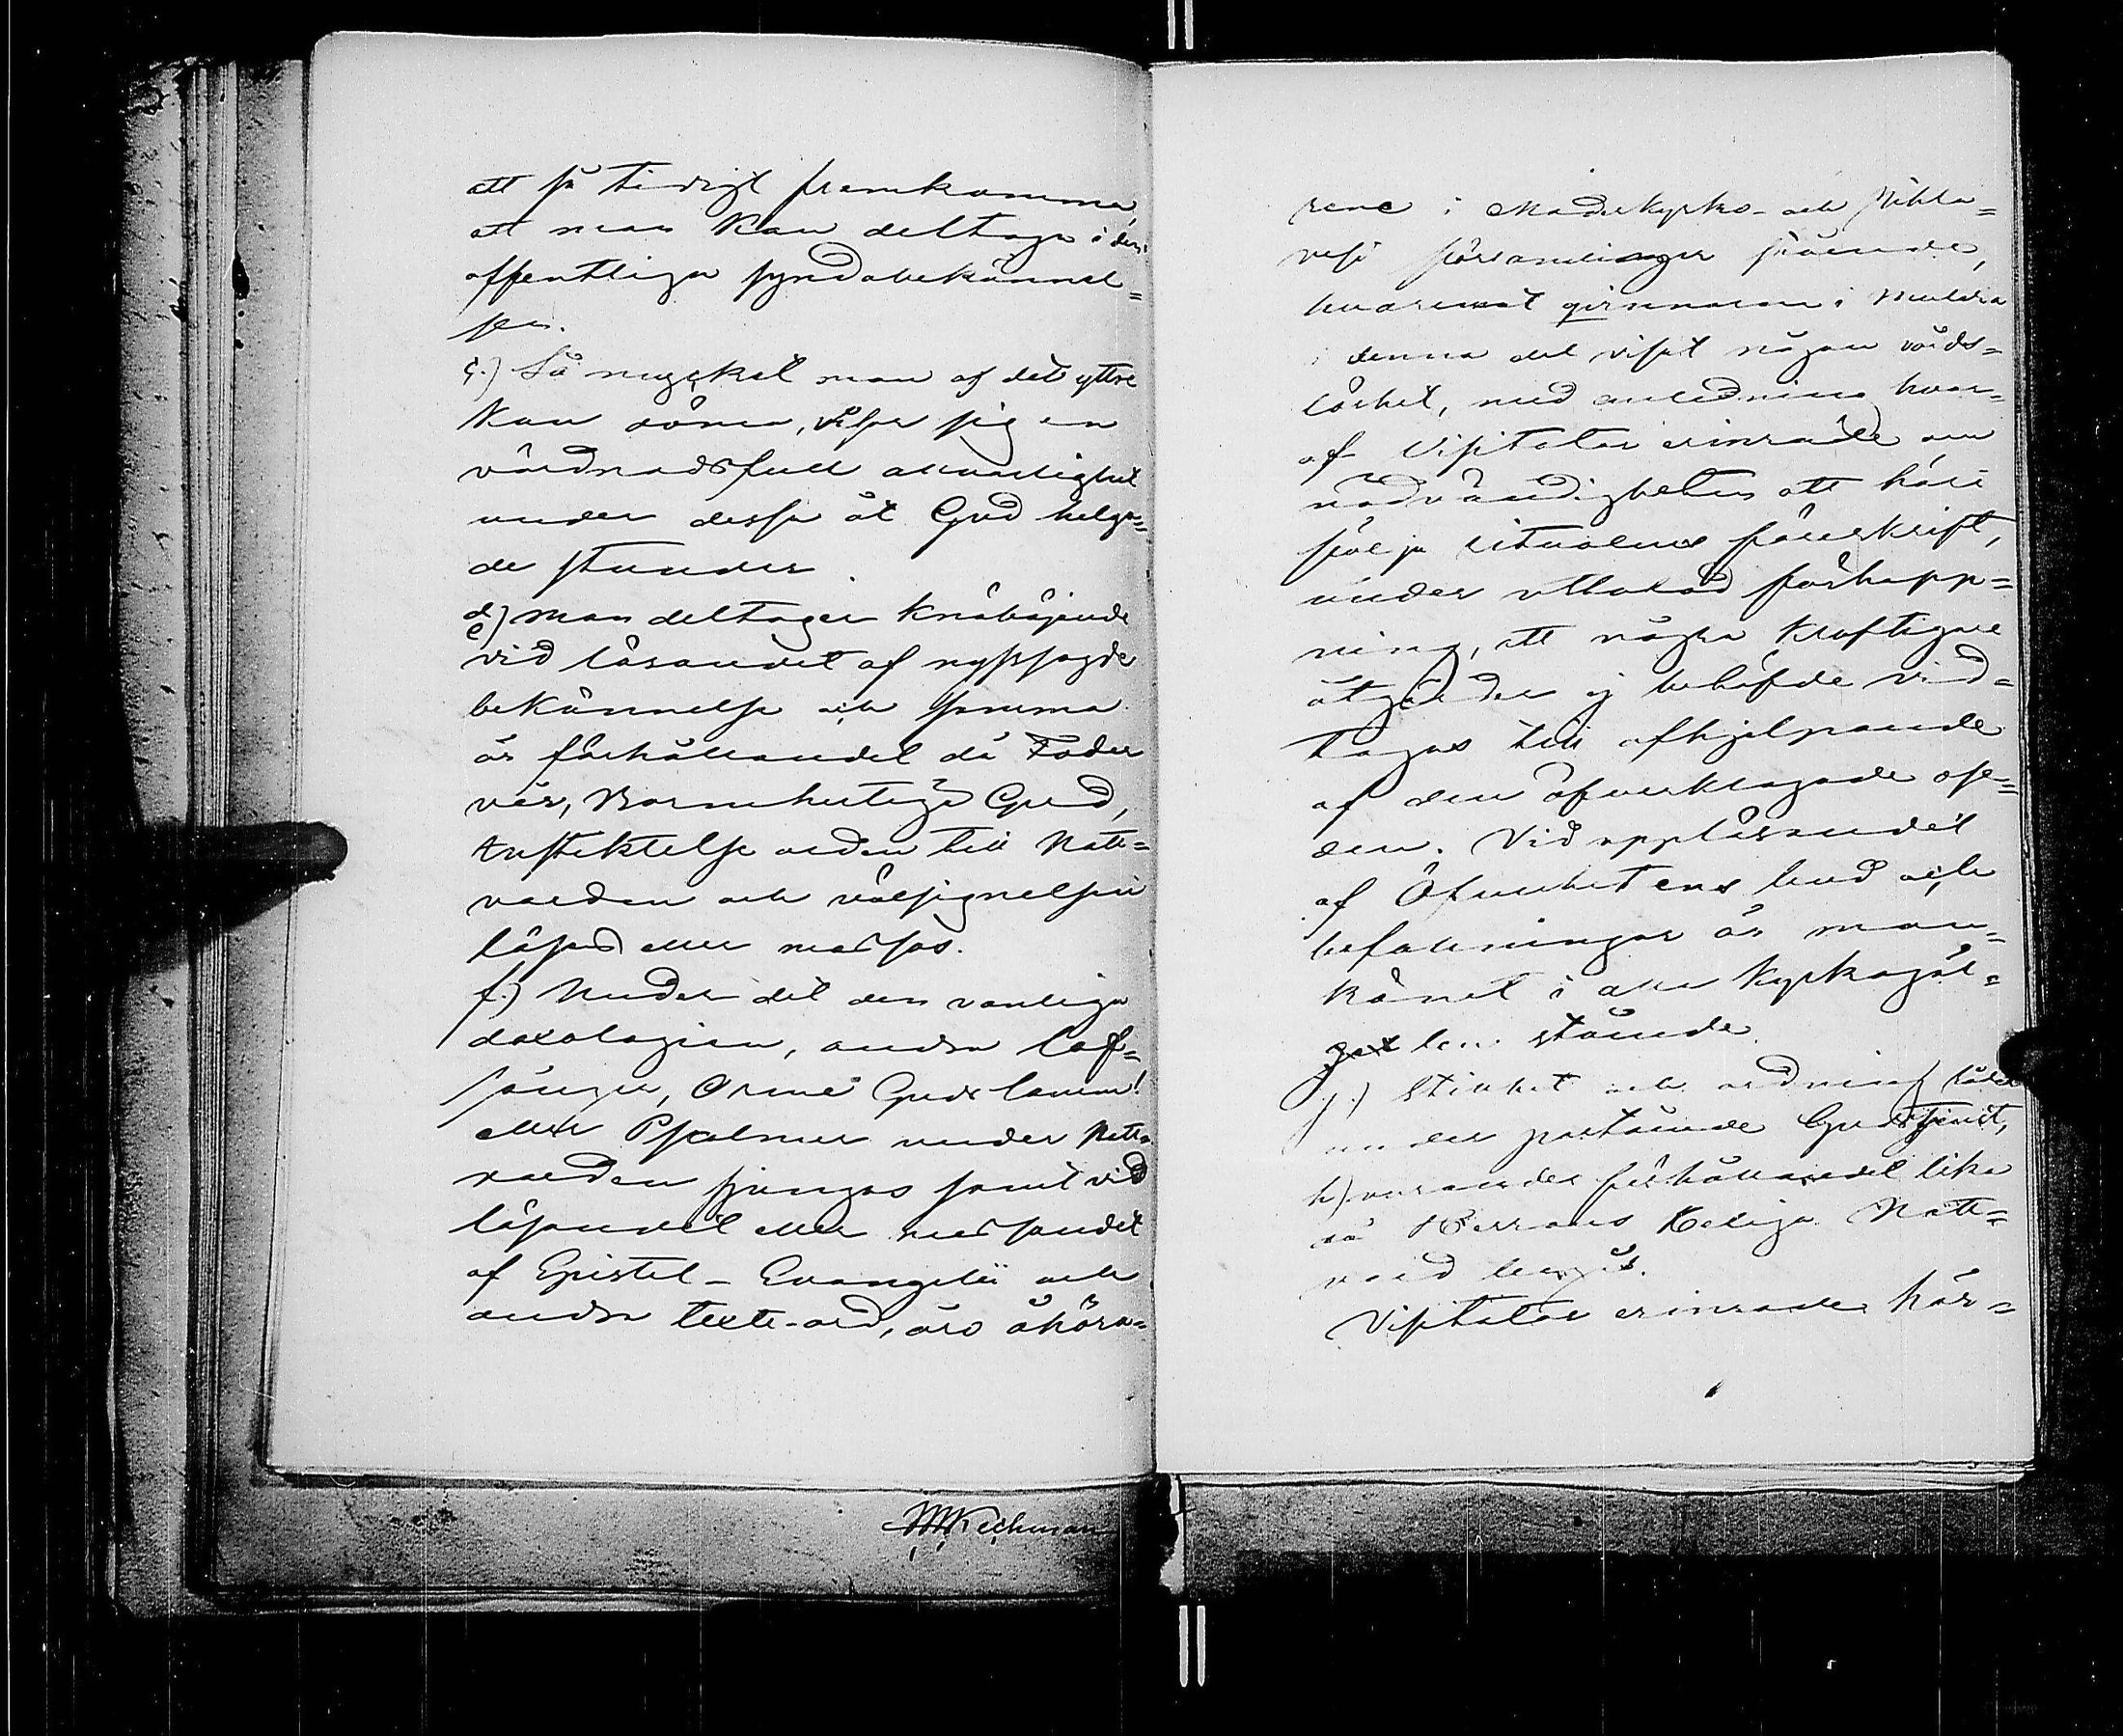 att så tidigt framkomma,
att man kan deltaga i den
offentliga syndabekännel=
sen.
c.) Så mycket man af det yttre
kan döma, visar sig en
vördnadsfull allvarlighet
under dessa åt Gud helga=
de stunder.
e) man deltager knäböjande
vid läsandet af nyssagde
bekännelse och samma
är förhållandet då Fader
vår, Barmhertige Gud,
Instiktelse orden till Natt=
varden och välsignelsen
läses eller messas.
f.) Under det den vanliga
doxologien, andra lof=
sånger, O rene Guds lamm!
eller Psalmer under Natt=
varden sjunges samt vid
läsandet eller messandet
af Epistel- Evangelii och
andra texte-ord, äro åhöra=
rene i Moderkyrko- och
församlingar stående,
hvaremot i Muldia
i denna del visat någon vårds=
löshet, med anledning hvar=
af Visitator erinrade om
nödvändigheten att häri
följa ritualens föreskrift,
under uttalad förhopp=
ning, att några kraftigare
åtgärder ej behöfde vid=
tagas till afhjelpande
af den öfverklagade ose=
den. Vid uppläsandet
af Öfverhetens bud och
befallningar är man=
könet i alla Kyrkogäl=
len stående.
g.) Stillhet och ordning råder
under påstående Gudstjenst,
h) varandes förhållandet lika
då Herrans Heliga Natt=
vard begås.
Visitator erinrade här=